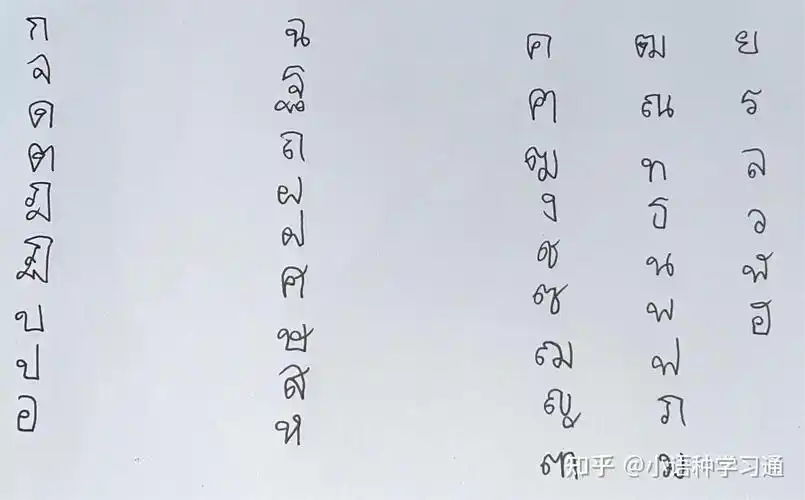 ก
จ
ด
ต
ฎ
ฏ
บ
ป
อ
ฉ
ฐ
ถ
ผ
ฝ
ศ
ษ
ส
ห
ค
ฅ
ฆ
ง
ช
ซ
ฌ
ญ
ฑ
ฒ
ณ
ท
ธ
น
พ
ฟ
ภ
ม
ย
ร
ล
ว
ฬ
ฮ
知乎 @小语种学习通